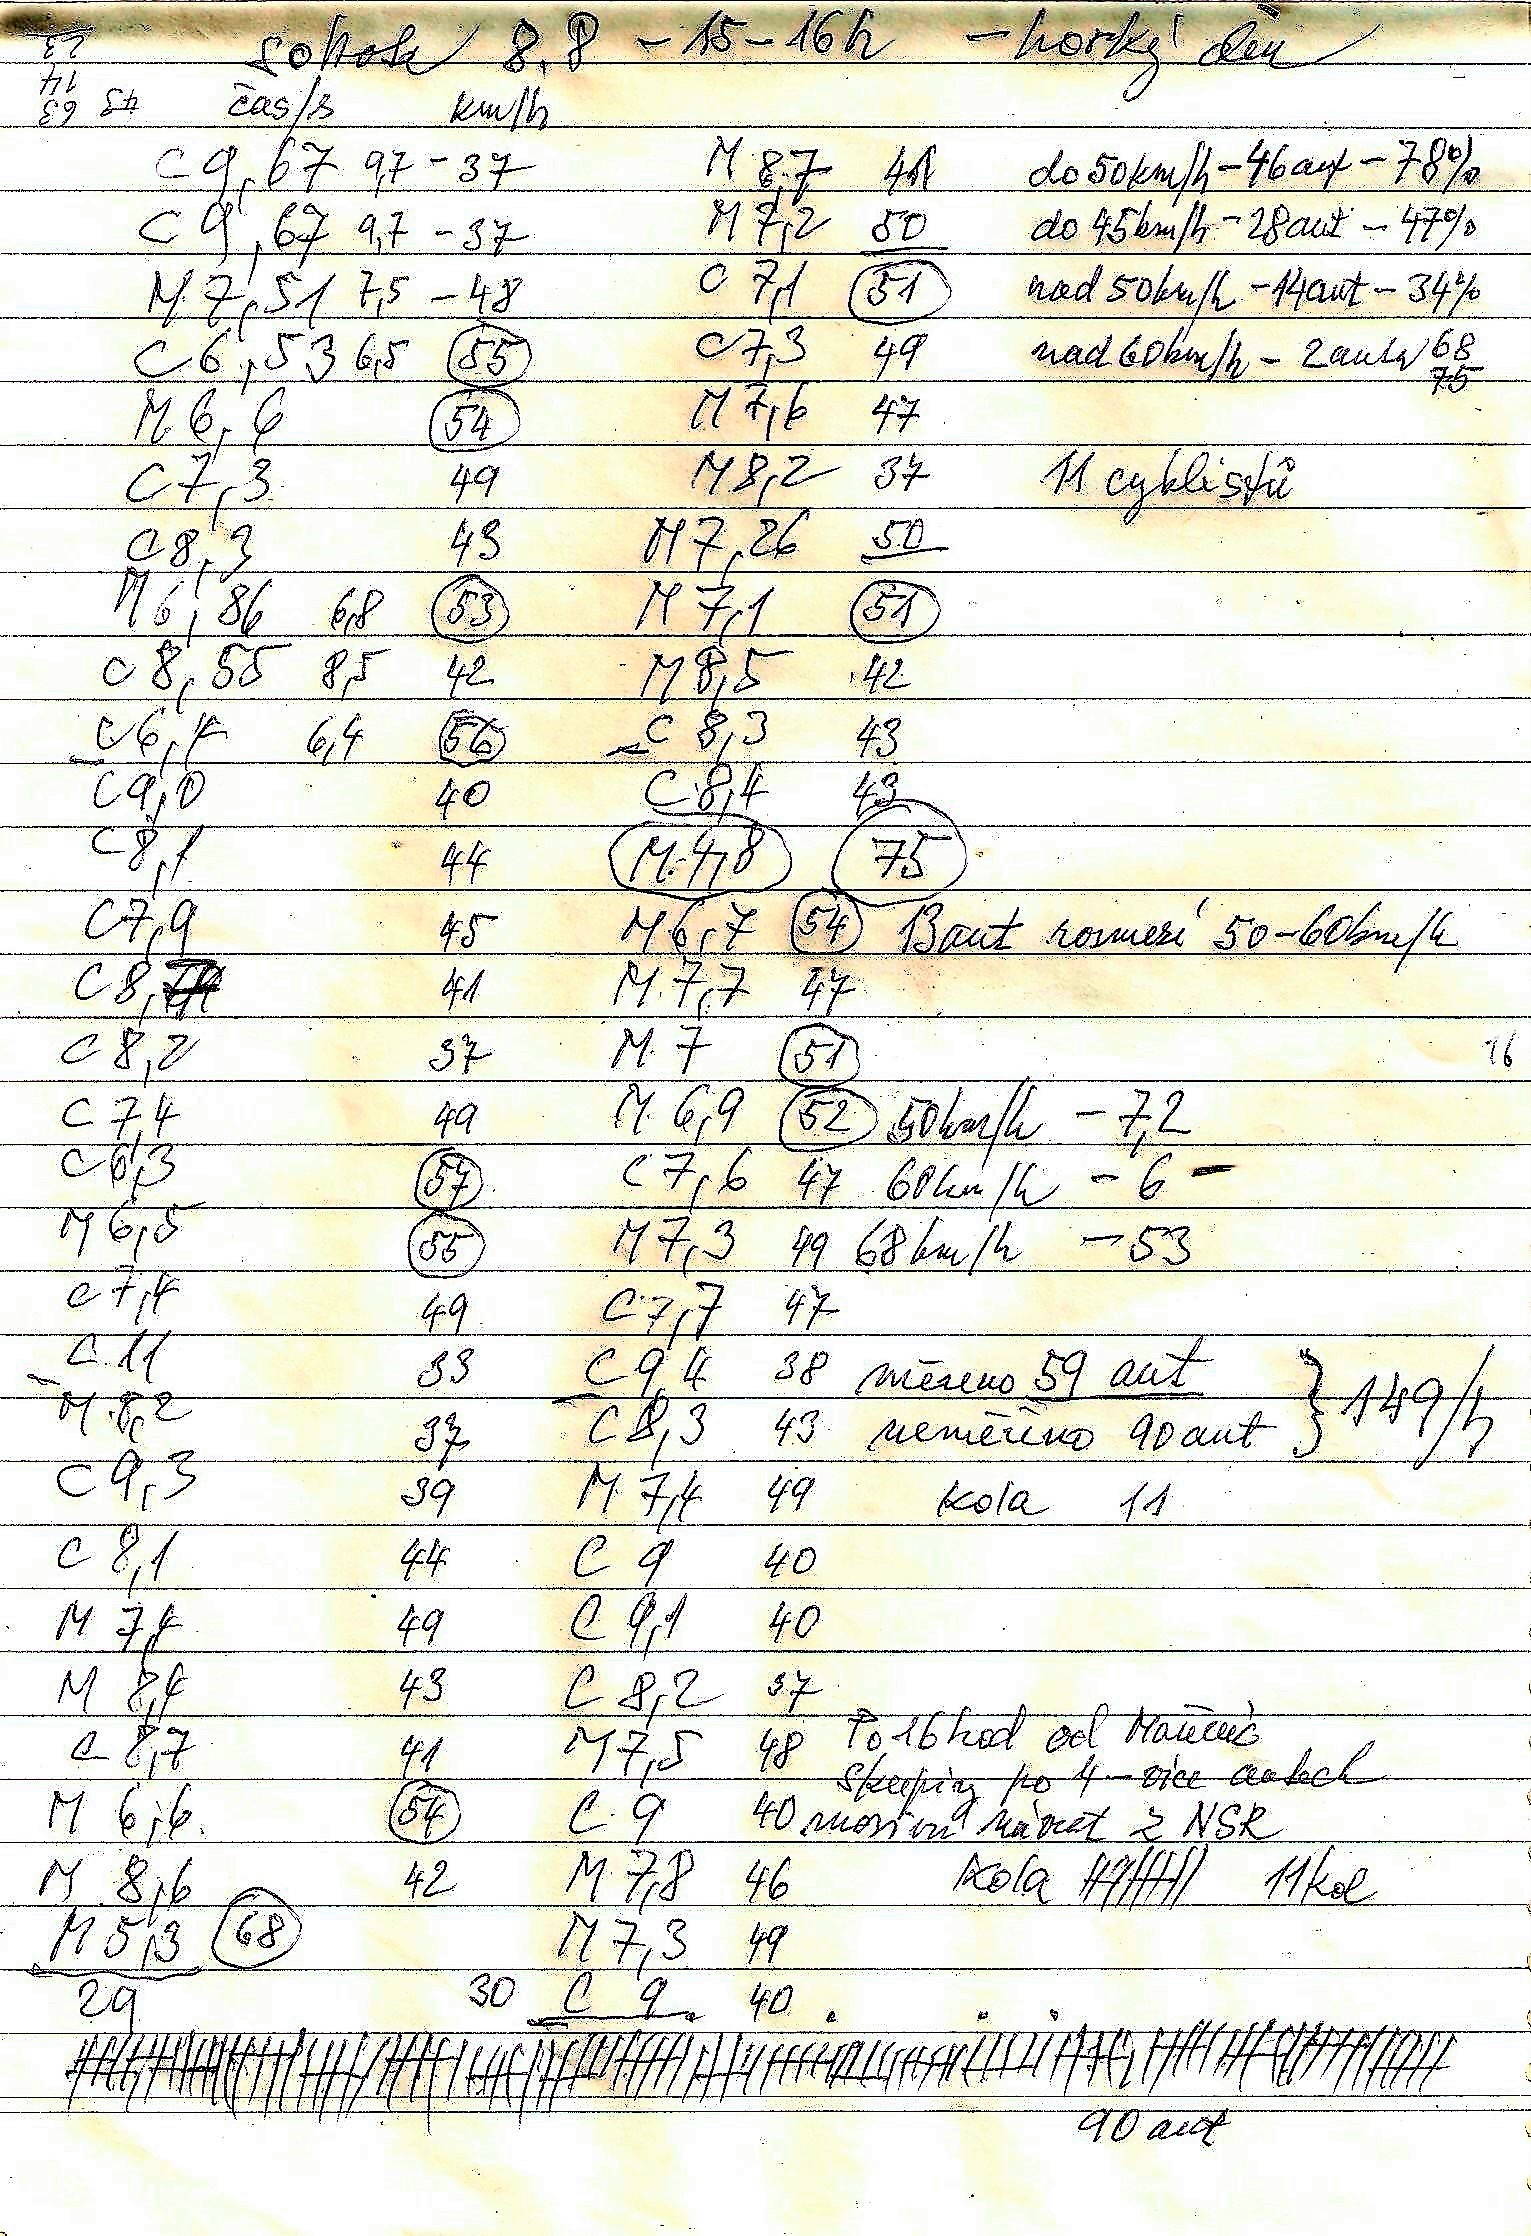 sobota 8.8 – 15–16h – horký den
23
14
63 43 čas/s km/h
C 9,67 9,7 – 37 M 8,7 41 do 50km/h – 46 aut – 78%
C 9,67 9,7 – 37 M 7,2 50 do 45km/h – 28 aut – 47%
M 7,51 7,5 – 48 C 7,1 51 nad 50km/h – 14 aut – 34%
C 6,53 6,5 55 C 7,3 49 nad 60km/h – 2 auta 68
75
M 6,6 54 M 7,6 47
C 7,3 49 M 8,2 37 11 cyklistů
C 8,3 43 M 7,26 50
M 6,86 6,8 53 M 7,1 51
C 8,55 8,5 42 M 8,5 42
C 6,4 6,4 56 C 8,3 43
C 9,0 40 C 8,4 43
C 8,1 44 M 4,8 75
C 7,9 45 M 6,7 54 13 aut rozmezí 50–60km/h
C 8, 41 M 7,7 47
C 8,2 37 M 7 51 16
C 7,4 49 M 6,9 52 50km/h – 7,2
C 6,3 57 C 7,6 47 60km/h – 6 –
M 6,5 55 M 7,3 49 68km/h – 53
C 7,4 49 C 7,7 47
C 11 33 C 9,4 38 měřeno 59 aut } 149/h
M 8,2 37 C 8,3 43 neměřeno 90 aut
C 9,3 39 M 7,4 49 kola 11
C 8,1 44 C 9 40
M 7,4 49 C 9,1 40
M 8,4 43 C 8,2 37
C 8,7 41 M 7,5 48 Po 16 hod od
skupiny po 4 – více autech
M 6,6 54 C 9 40 návrat z NSR
M 8,6 42 M 7,8 46 kola 11 kol
M 5,3 68 M 7,3 49
29 30 C 9 40
90 aut